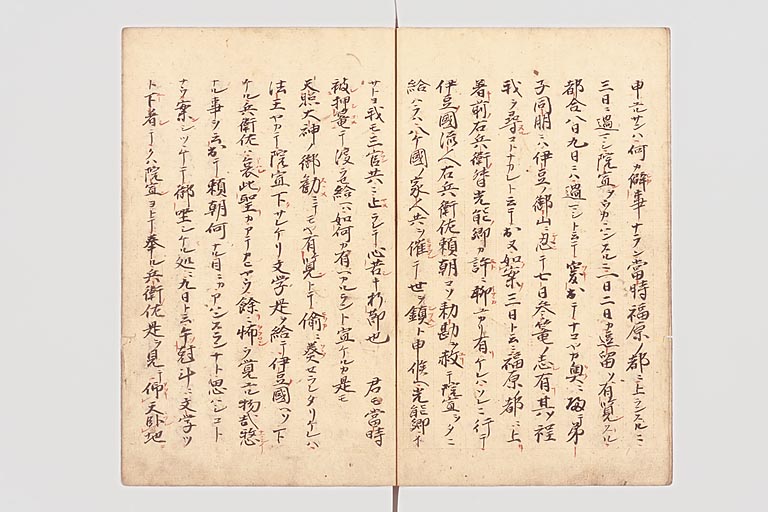 申ニサンハ何カ僻事ナラン當時福原ノ都ニ上ランスルニ
三日ニ過マシ院宣ヲウカハンスルニ一日二日カ逗留ソ有覧スル
都合八日九日ニハ過マシト云テ突出テナコヤカ奥ニ帰テ弟
子同朋ニハ伊豆ノ御山ニ忍テ七日参篭ノ志有其程
我ヲ尋コトナカレト云テ出又如案三日ト云ニ福原都ニ上リ
着前右兵衛督光能卿カ許ニ聊ユカリ有ケレハソレニ行テ
伊豆國流人右兵衛佐頼朝コソ勅勘ヲ赦レ院宣ヲタニ
給ハラハ八ケ國ノ家人共ヲ催テ世ヲ鎮ト申候ヘ光能卿イ
サトヨ我モ三官共ニ止ラレテ心苦キ折節也 君モ當時
被押篭テ渡ラセ給ヘハ如何カ有ヘカルラント宣ケルカ是モ
天照大神ノ御勧ニテモヤ有覧トテ偷ニ奏セラレタリケレハ
法王ヤカテ院宣下サレケリ文学是ヲ給テ伊豆國ヘソ下
ケル兵衛佐ハ哀此聖カアテカヒヤウ餘ニ怖ヲ覚ユル物哉愁
ナル事ヲ云出テ頼朝何ナル目ニカアハンスランナト思ハシコト
ナク案シツヽケテ御坐シケル処ニ九日ト云午尅斗ニ文学ツ
ト下着シテクハ院宣ヨトテ奉ル兵衛佐是ヲ見テ仰天臥地